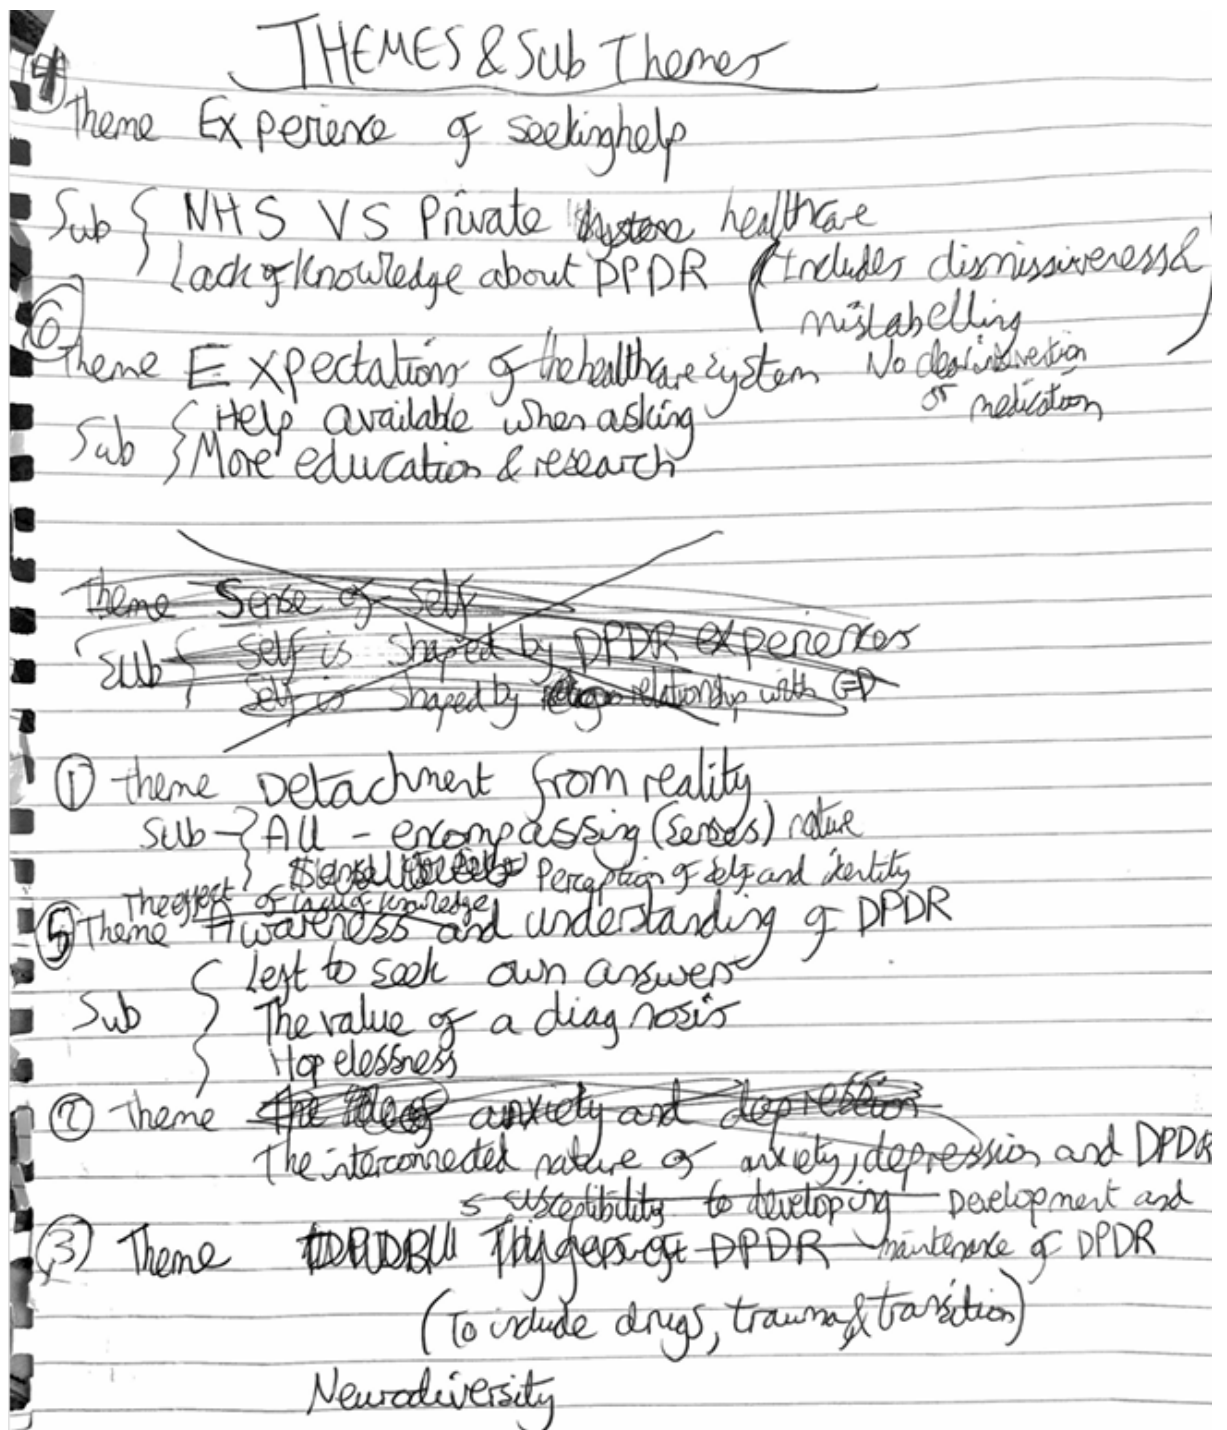 THEMES & Sub Themes
④
Theme Experience of seeking help
Sub { NHS VS Private healthcare
Lack of knowledge about DPDR (Includes dismissiveness &
mislabelling)
⑥
Theme Expectations of the healthcare system No clear intervention
or medication
Sub { Help available when asking
More education & research
Theme Sense of Self
Sub { Self is shaped by DPDR experiences
Self is shaped by relationship with GOD
① Theme Detachment from reality
Sub { All-encompassing (senses) nature
Perception of self and identity
The effect of lack of knowledge
⑤ Theme Awareness and understanding of DPDR
Left to seek own answers
Sub { The value of a diagnosis
Hopelessness
② Theme The role of anxiety and depression
The interconnected nature of anxiety, depression and DPDR
susceptibility to developing Development and
③ Theme Triggers of DPDR maintenance of DPDR
(To include drugs, trauma & transition)
Neurodiversity